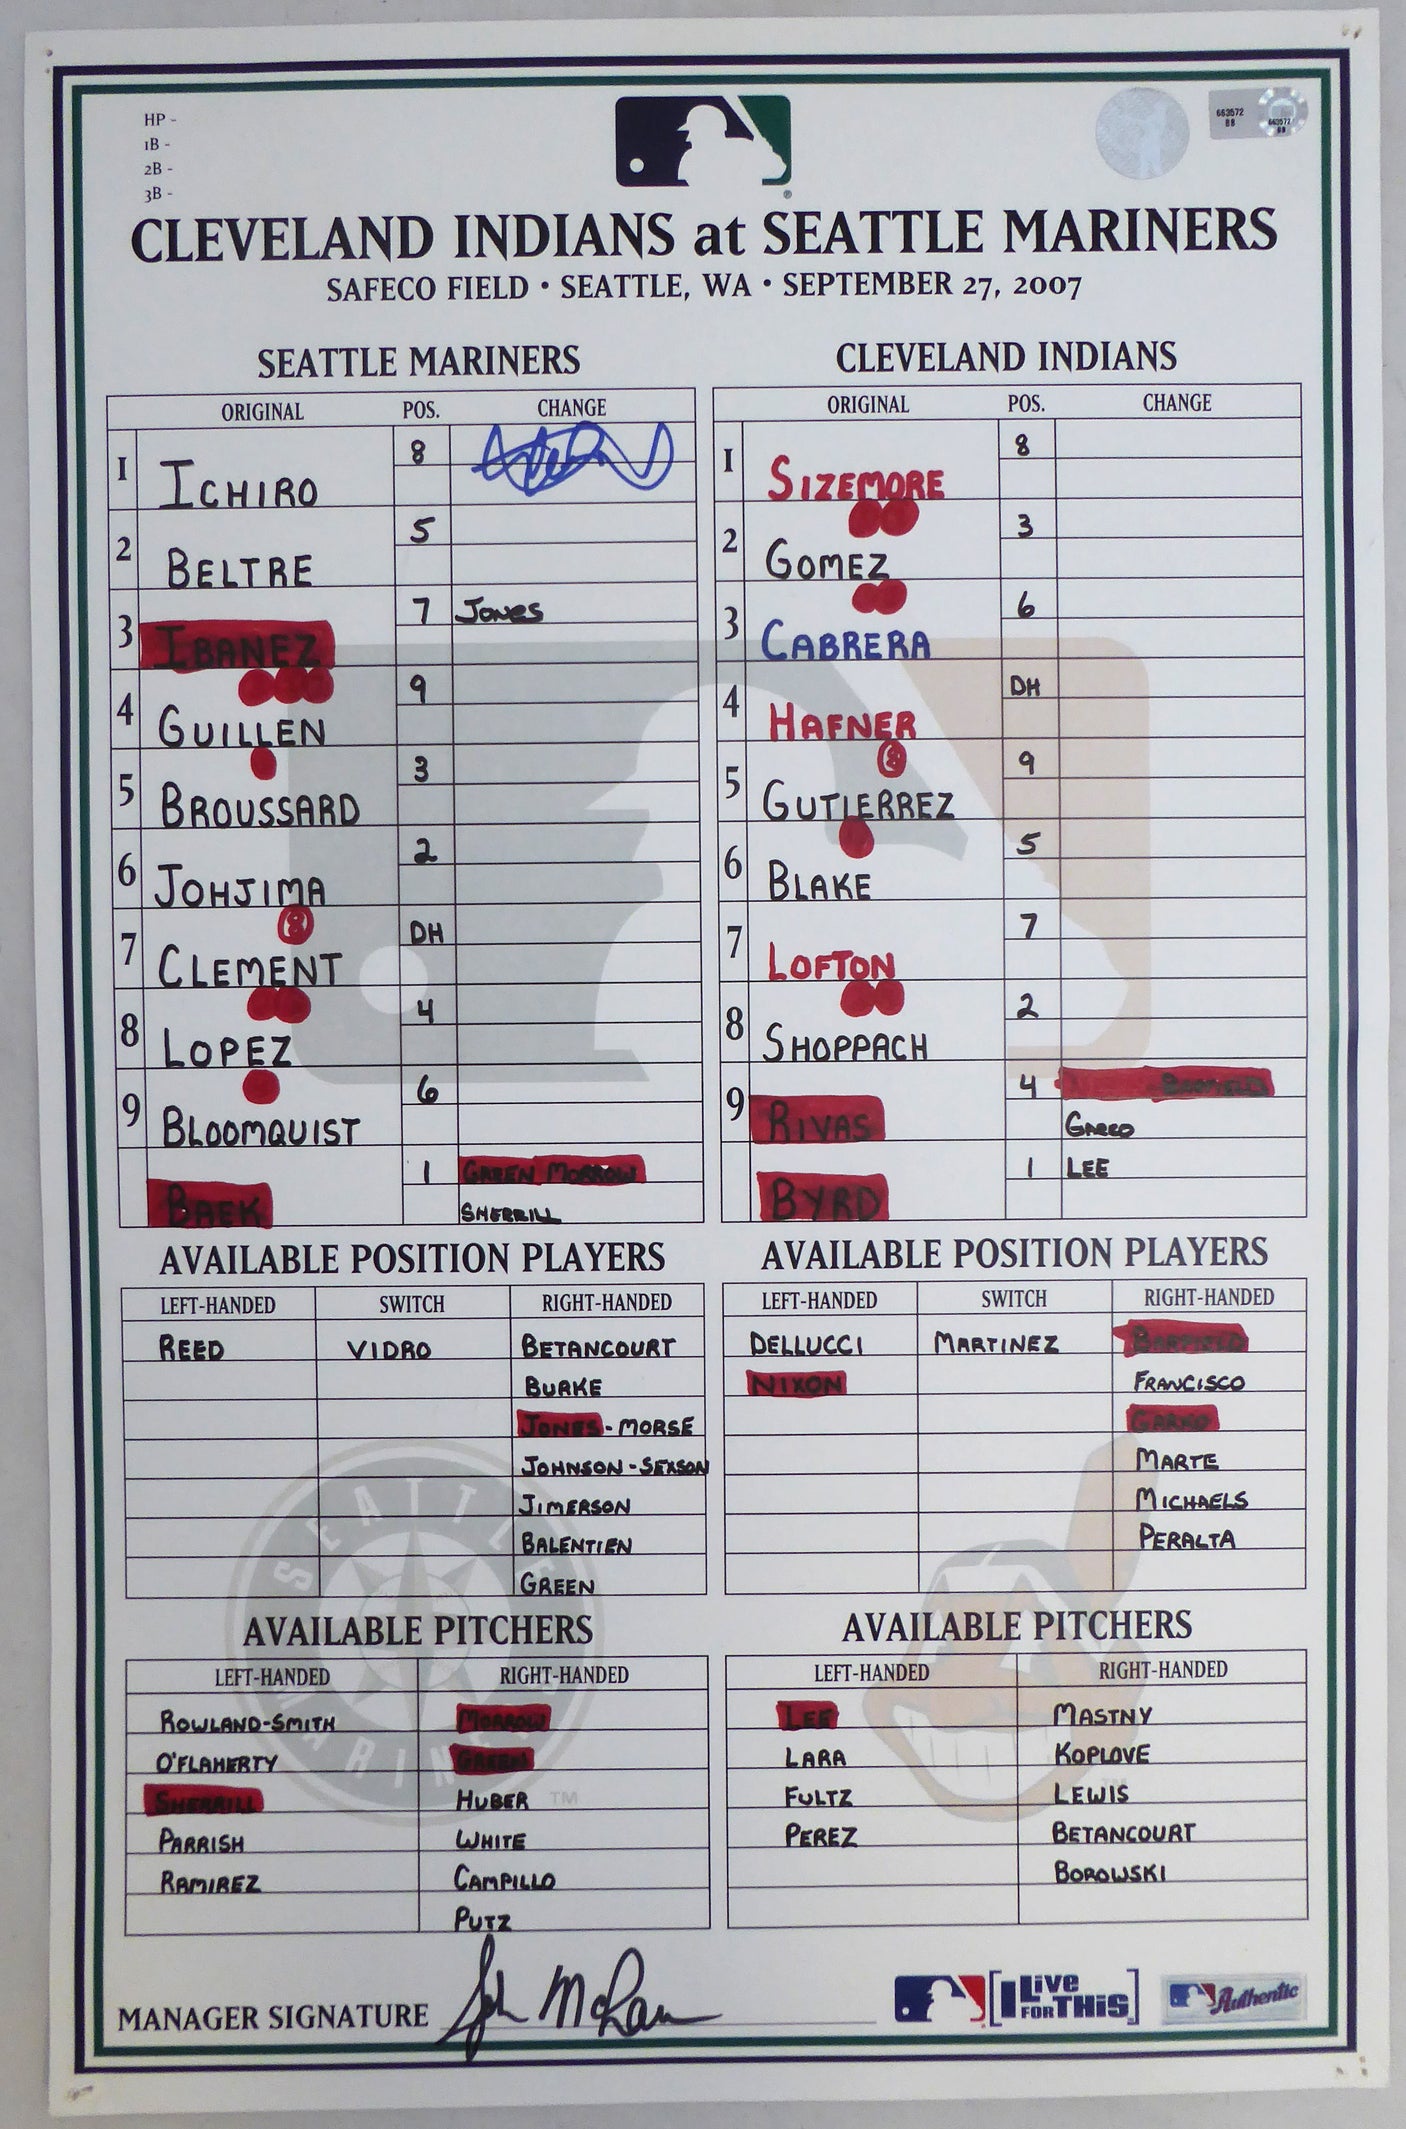 HP -
1B -
2B -
3B -
663572
BB
663572
BB
CLEVELAND INDIANS at SEATTLE MARINERS
SAFECO FIELD • SEATTLE, WA • SEPTEMBER 27, 2007
SEATTLE MARINERS
ORIGINAL POS. CHANGE
1 ICHIRO 8
2 BELTRE 5
3 IBANEZ 7 JONES
4 GUILLEN 9
5 BROUSSARD 3
6 JOHJIMA 2
7 CLEMENT DH
8 LOPEZ 4
9 BLOOMQUIST 6
BAEK 1 GREEN MORROW
SHERRILL
CLEVELAND INDIANS
ORIGINAL POS. CHANGE
1 SIZEMORE 8
2 GOMEZ 3
3 CABRERA 6
4 HAFNER DH
5 GUTIERREZ 9
6 BLAKE 5
7 LOFTON 7
8 SHOPPACH 2
9 RIVAS 4
GARKO
BYRD 1 LEE
AVAILABLE POSITION PLAYERS
LEFT-HANDED SWITCH RIGHT-HANDED
REED VIDRO BETANCOURT
BURKE
JONES - MORSE
JOHNSON - SEXSON
JIMERSON
BALENTIEN
GREEN
AVAILABLE POSITION PLAYERS
LEFT-HANDED SWITCH RIGHT-HANDED
DELLUCCI MARTINEZ BARFIELD
NIXON FRANCISCO
GARKO
MARTE
MICHAELS
PERALTA
AVAILABLE PITCHERS
LEFT-HANDED RIGHT-HANDED
ROWLAND-SMITH MORROW
O'FLAHERTY GREEN
SHERRILL HUBER
PARRISH WHITE
RAMIREZ CAMPILLO
PUTZ
AVAILABLE PITCHERS
LEFT-HANDED RIGHT-HANDED
LEE MASTNY
LARA KOPLOVE
FULTZ LEWIS
PEREZ BETANCOURT
BOROWSKI
SEATTLE
MARINERS
TM
MANAGER SIGNATURE John McLaren
I LIVE FOR THIS
Authentic